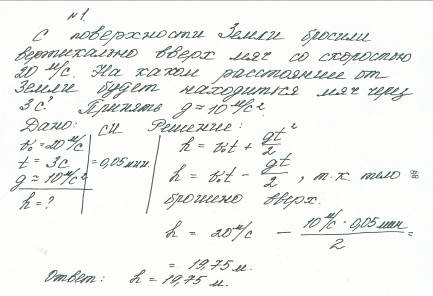 №1.
С поверхности Земли бросили
вертикально вверх мяч со скоростью
20 м/с. На каком расстоянии от
Земли будет находиться мяч через
3с? Принять g ≈ 10 м/с².
Дано: СИ Решение:
v₀ = 20 м/с h = v₀t + gt²/2
t = 3с = 0,05 мин.
g ≈ 10 м/с² h = v₀t - gt/2, т.к тело
h = ? брошено вверх.
h = 20 м/с - 10 м/с · 0,05 мин/2 =
= 19,75 м.
Ответ: h = 19,75 м.